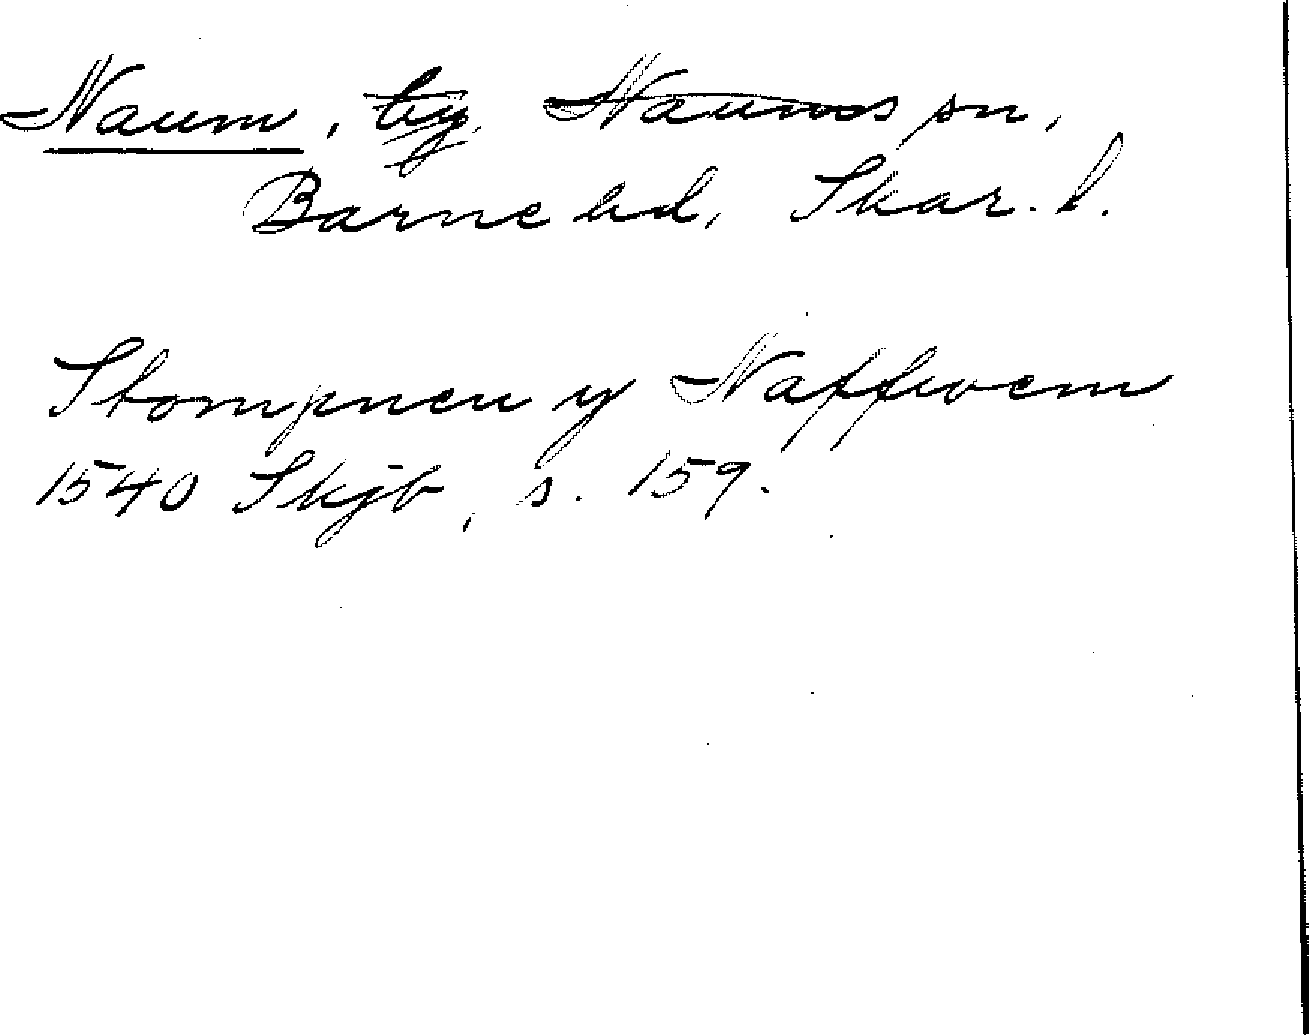 Naum, by, Naums sn,
Barne hd, Skar. l.
Stompneu y Naffwem
1540 Skjb, s. 159.